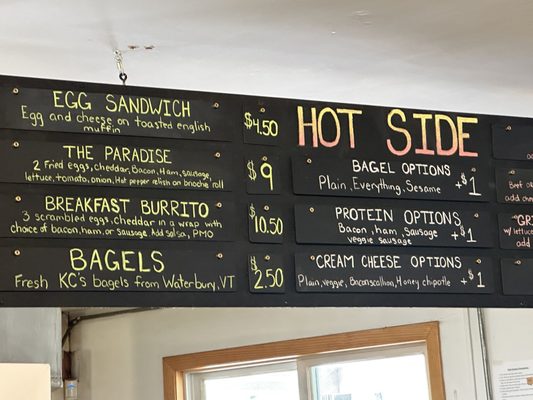 EGG SANDWICH
Egg and cheese on toasted english
muffin
$4.50
THE PARADISE
2 Fried eggs, cheddar, Bacon, Ham, sausage,
lettuce, tomato, onion, Hot pepper relish on brioche roll
$9
BREAKFAST BURRITO
3 scrambled eggs, cheddar in a wrap with
choice of bacon, ham, or sausage. Add salsa, PMO
$10.50
BAGELS
Fresh KC's bagels from Waterbury, VT
$2.50
HOT SIDE
BAGEL OPTIONS
Plain, Everything, Sesame +$1
PROTEIN OPTIONS
Bacon, ham, Sausage
veggie sausage +$1
CREAM CHEESE OPTIONS
Plain, veggie, Baconscallion, Honey chipotle +$1